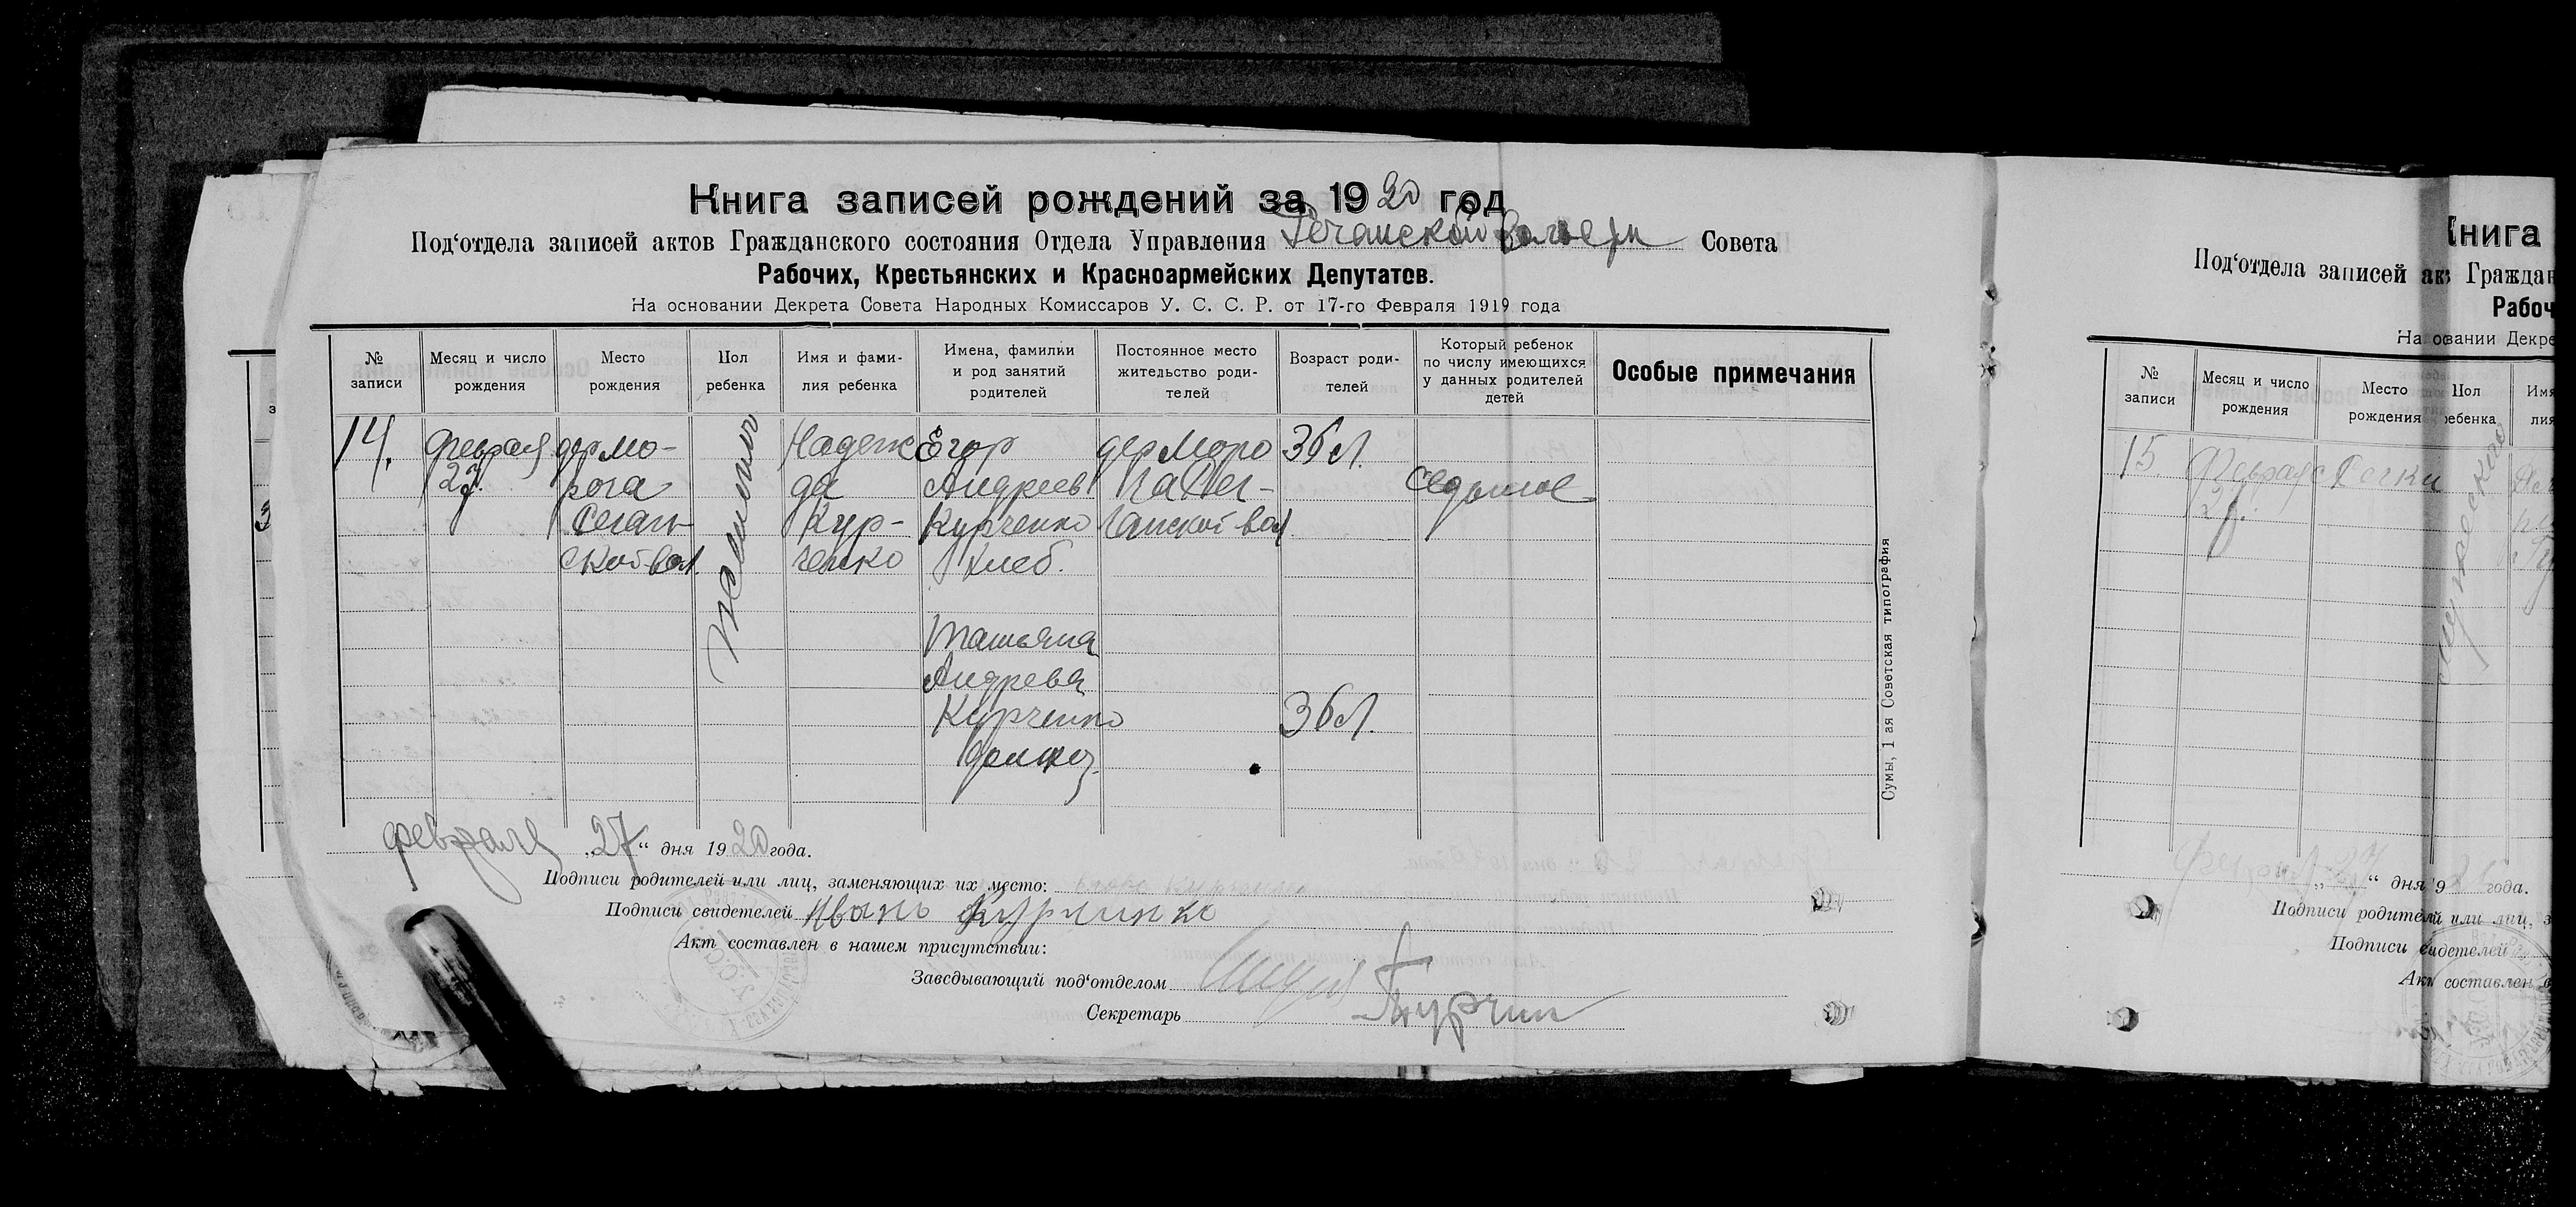 Книга записей рождений за 1920 год
Под‘отдела записей актов Гражданского состояния Отдела Управления Речанской Совета
Рабочих, Крестьянских и Красноармейских Депутатов.
На основании Декрета Совета Народных Комиссаров У. С. С. Р. от 17-го Февраля 1919 года
№ записи
Месяц и число рождения
Место рождения
Пол ребенка
Имя и фами-
лия ребенка
Имена, фамилии
и род занятий
родителей
Постоянное место
жительство роди-
телей
Возраст роди-
телей
Который ребенок
по числу имеющихся
у данных родителей
детей
Особые примечания
14.
Февраля
27.
дер Мо-
роча
Речан-
ской вол.
Надеж
да
Кур-
ченко
Егор
Андреев
Курченко
хлеб.
Татьяна
Андрева
Курченко
дер Моро
ча Реч-
чанской вол
36 л.
36 л.
седьмое
Сумы, 1 ая Советская типография
февраля „27“ дня 1920 года.
Подписи родителей или лиц, заменяющих их место:
Подписи свидетелей Иванъ Курчинко
Акт составлен в нашем присутствии:
Заведывающий под‘отделом
Секретарь
Книга
Под‘отдела записей ак Граждан
Рабоч
На основании Декре
№ записи
Месяц и число
рождения
Место
рождения
Пол
ребенка
Имя
лия
15.
Февраля
27.
Речки
мужеский
дня 19 года.
Подписи родителей или лиц, з
Подписи свидетелей
Акт составлен в